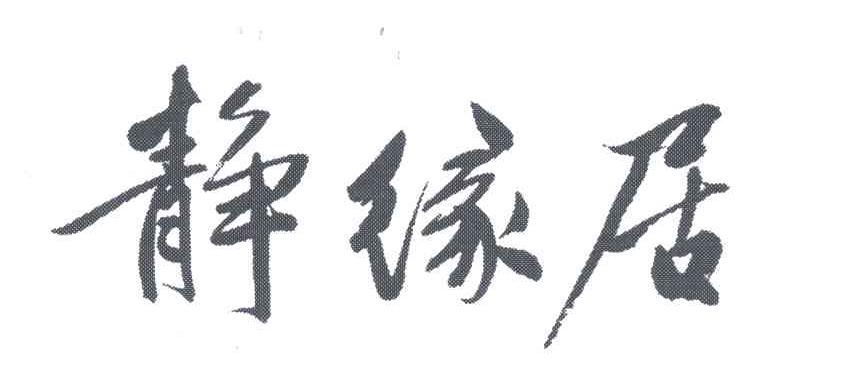 静缘居